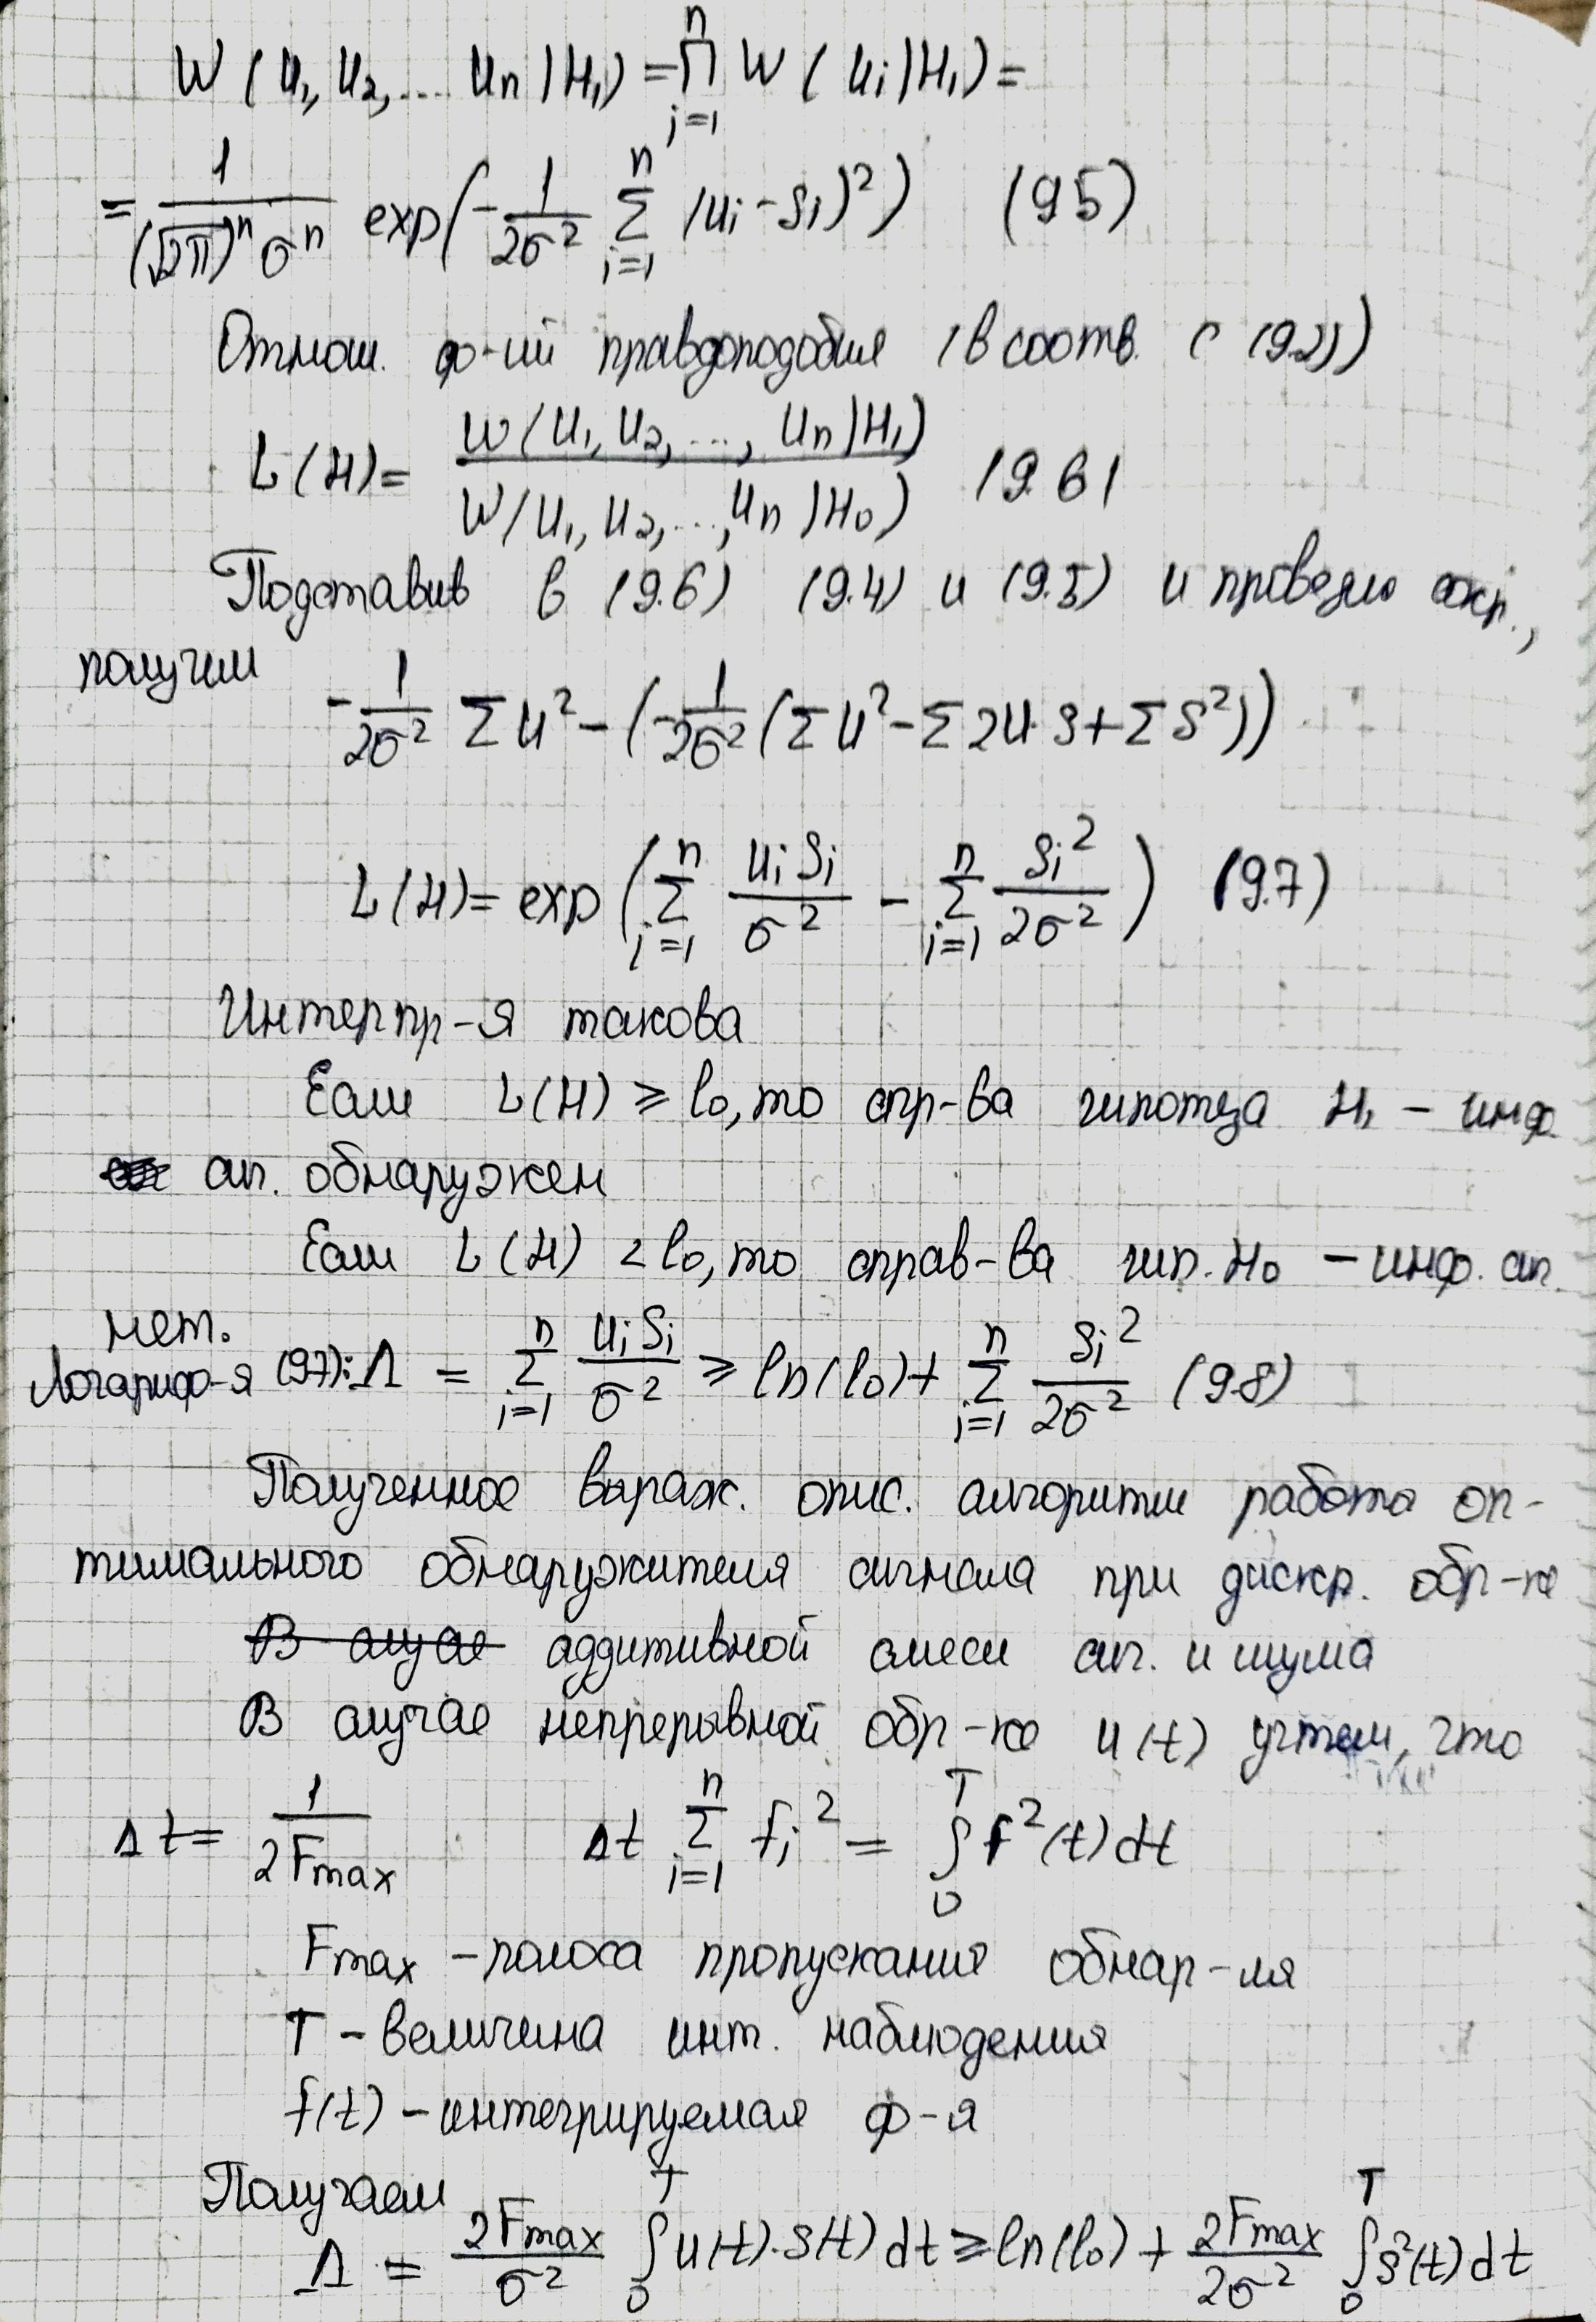 W (u₁, u₂, ... uₙ | H₁) = ∏ᵢ₌₁ⁿ W (uᵢ | H₁) =
= 1/((√2π)ⁿ σⁿ) exp(-1/(2σ²) ∑ᵢ₌₁ⁿ (uᵢ - Sᵢ)²) (9.5)
Отнош. ф-ий правдоподобия (в соотв. с (9.2))
L(H) = W(u₁, u₂, ..., uₙ | H₁) / W(u₁, u₂, ..., uₙ | H₀) (9.6)
Подставив в (9.6) (9.4) и (9.5) и проведя сокр.,
получим
-1/(2σ²) ∑u² - (-1/(2σ²) (∑u² - ∑2u·S + ∑S²))
L(H) = exp (∑ᵢ₌₁ⁿ uᵢSᵢ/σ² - ∑ᵢ₌₁ⁿ Sᵢ²/(2σ²)) (9.7)
Интерпр-я такова
Если L(H) ≥ l₀, то спр-ва гипотеза H₁ - инф.
сиг. обнаружен
Если L(H) < l₀, то справ-ва гип. H₀ - инф. сиг.
нет.
Логариф-я (9.7): Λ = ∑ᵢ₌₁ⁿ uᵢSᵢ/σ² ≥ ln(l₀) + ∑ᵢ₌₁ⁿ Sᵢ²/(2σ²) (9.8)
Полученное выраж. опис. алгоритм работы оп-
тимального обнаружителя сигнала при дискр. обр-ке
В случае аддитивной смеси сиг. и шума
В случае непрерывной обр-ке u(t) учтем, что
Δt = 1/(2Fmax) Δt ∑ᵢ₌₁ⁿ fᵢ² = ∫₀ᵀ f²(t)dt
Fmax - полоса пропускания обнар-ля
T - величина инт. наблюдения
f(t) - интегрируемая ф-я
Получаем
Λ = 2Fmax/σ² ∫₀ᵀ u(t)·S(t) dt ≥ ln(l₀) + 2Fmax/(2σ²) ∫₀ᵀ S²(t)dt